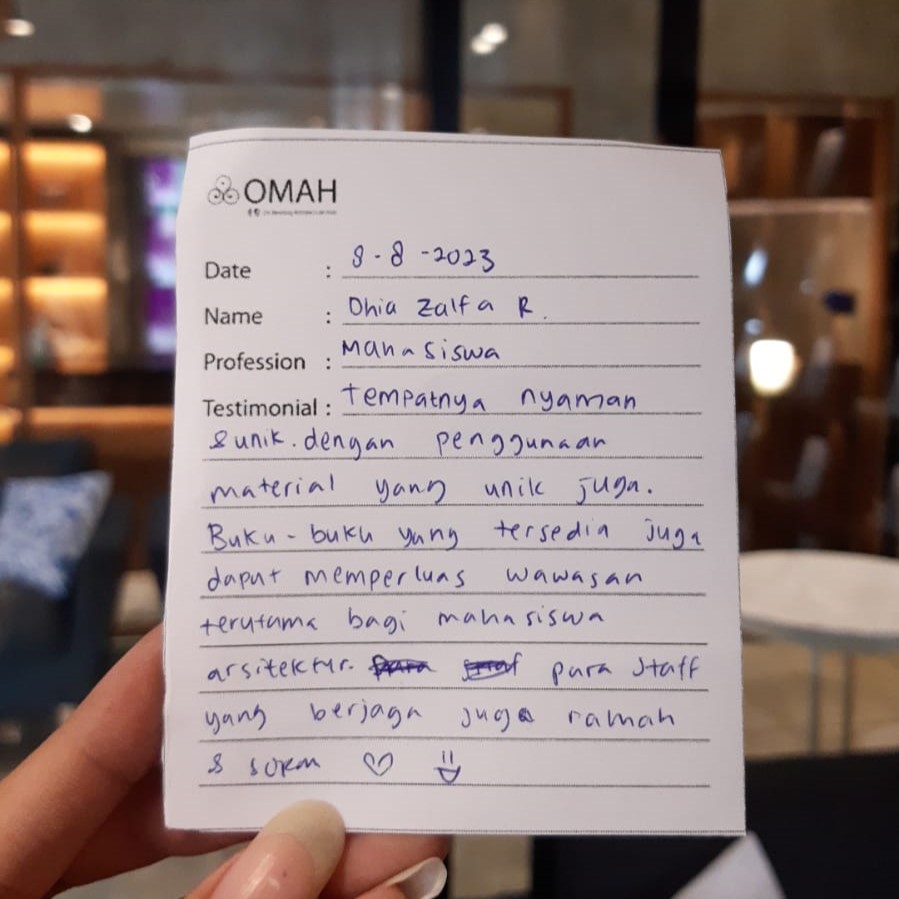 OMAH
Date : 8-8-2023
Name : Dhia Zalfa R.
Profession : Mahasiswa
Testimonial : tempatnya nyaman
& unik. dengan penggunaan
material yang unik juga.
Buku-buku yang tersedia juga
dapat memperluas wawasan
terutama bagi mahasiswa
arsitektur. para staff
yang berjaga juga ramah
& sopan